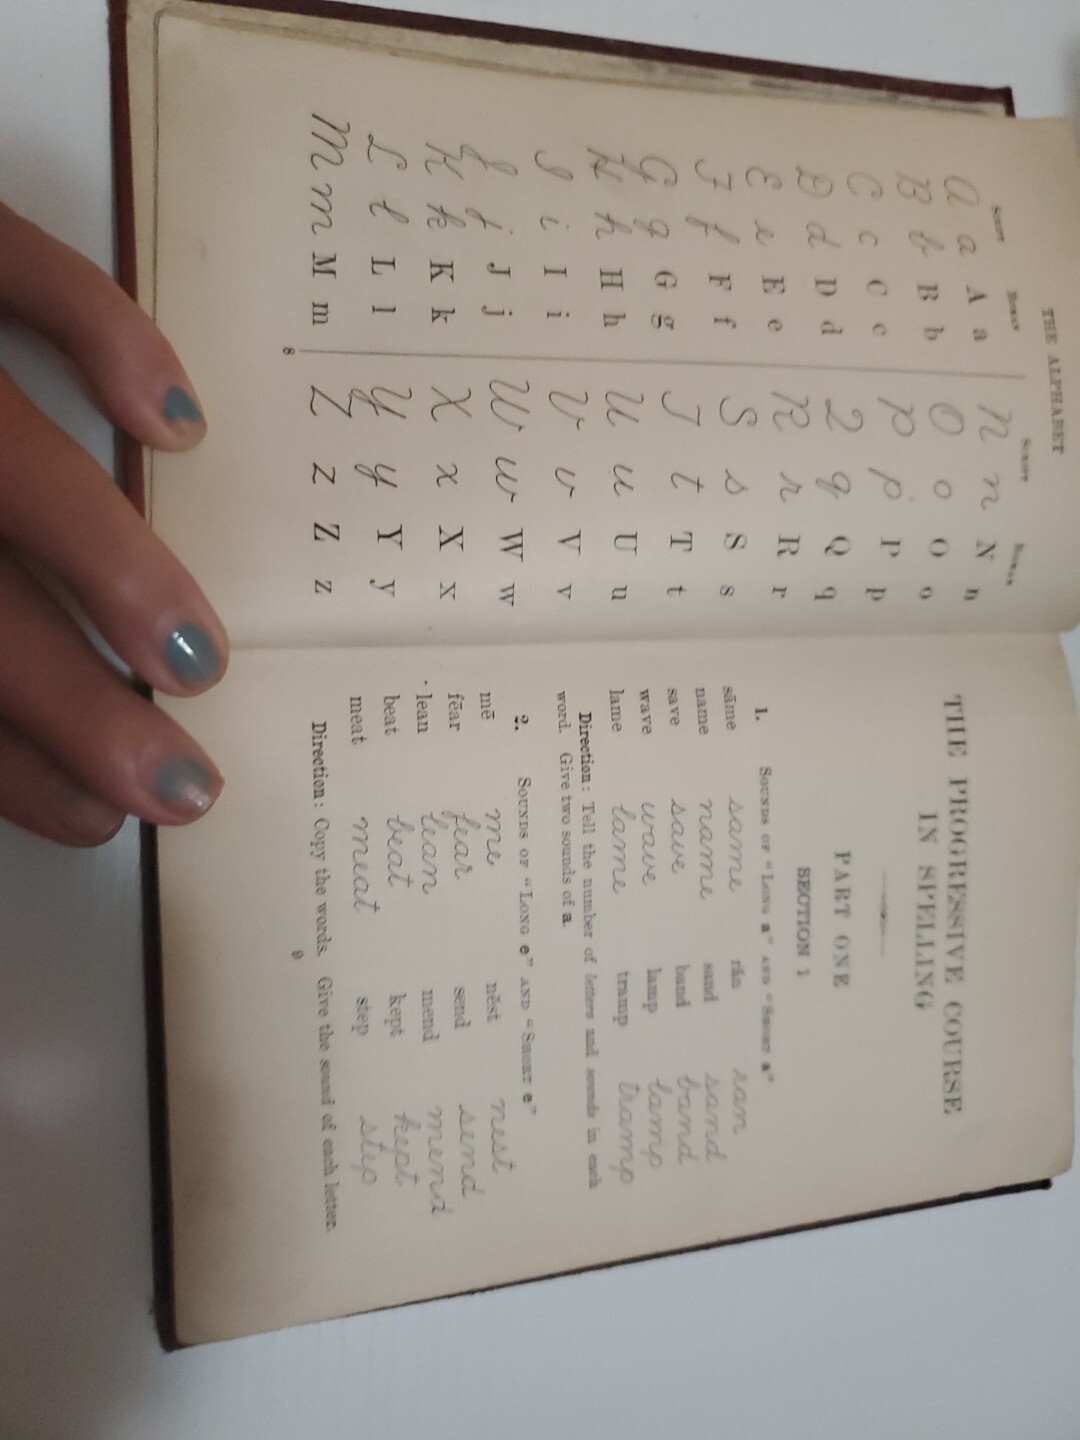 THE ALPHABET
SCRIPT ROMAN SCRIPT ROMAN
A a A a N n N n
B b B b O o O o
C c C c P p P p
D d D d Q q Q q
E e E e R r R r
F f F f S s S s
G g G g T t T t
H h H h U u U u
I i I i V v V v
J j J j W w W w
K k K k X x X x
L l L l Y y Y y
M m M m Z z Z z
8
THE PROGRESSIVE COURSE
IN SPELLING
PART ONE
SECTION 1
1. SOUNDS OF "LONG a" AND "SHORT a"
sāme same răn ran
name name sand sand
save save band band
wave wave lamp lamp
lame lame tramp tramp
Direction: Tell the number of letters and sounds in each
word. Give two sounds of a.
2. SOUNDS OF "LONG e" AND "SHORT e"
mē me nĕst nest
fēar fear send send
lean lean mend mend
beat beat kept kept
meat meat step step
Direction: Copy the words. Give the sound of each letter.
9